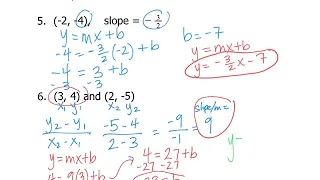 5. (-2, -4), slope = -3/2
y = mx + b
-4 = -3/2(-2) + b
-4 = 3 + b
-3 -3
b = -7
y = mx + b
y = -3/2x - 7
6. (3, 4) and (2, -5)
x₁ y₁ x₂ y₂
y₂ - y₁ / x₂ - x₁
-5 - 4 / 2 - 3 = -9 / -1 = 9
slope/m =
y = mx + b
4 = 9(3) + b
4 = 27 + b
-27 -27
y =